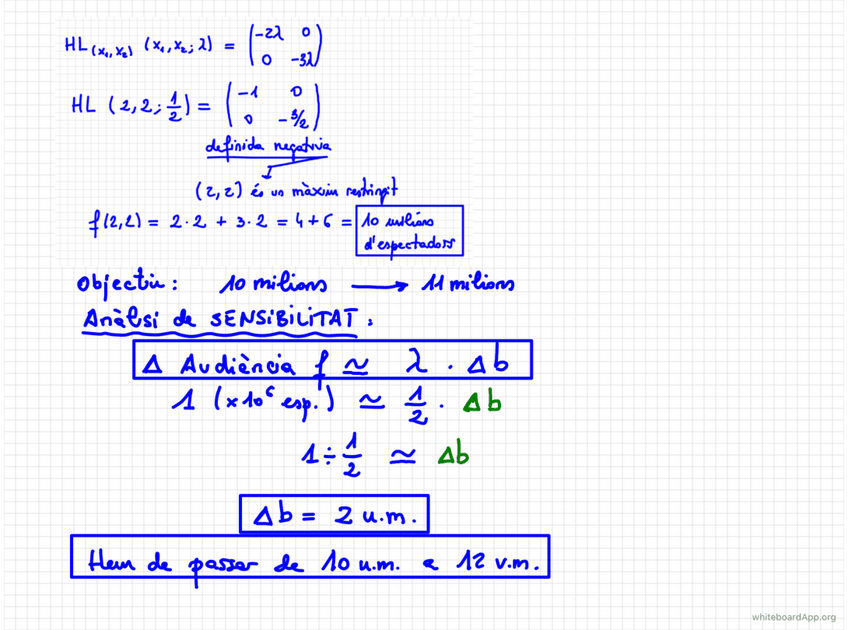 HL(x₁,x₂) (x₁,x₂;λ) = (-2λ 0
0 -3λ)
HL (2,2;1/2) = (-1 0
0 -3/2)
definida negativa
(2,2) és un màxim restringit
f(2,2) = 2·2 + 3·2 = 4+6 = 10 milions
d'espectadors
Objectiu: 10 milions → 11 milions
Anàlisi de SENSiBiLiTAT:
Δ Audiència f ≃ λ · Δb
1 (x10⁶ esp.) ≃ 1/2 · Δb
1 ÷ 1/2 ≃ Δb
Δb = 2 u.m.
Hem de passar de 10 u.m. a 12 u.m.
whiteboardApp.org